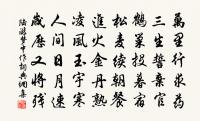 萬里行求藥
三生誓棄官
鶴巢投暮宿
松麨續朝餐
進火金丹熟
凌風玉宇寒
人間日月速
歲曆又將殘
陸游夢中作詞典網集